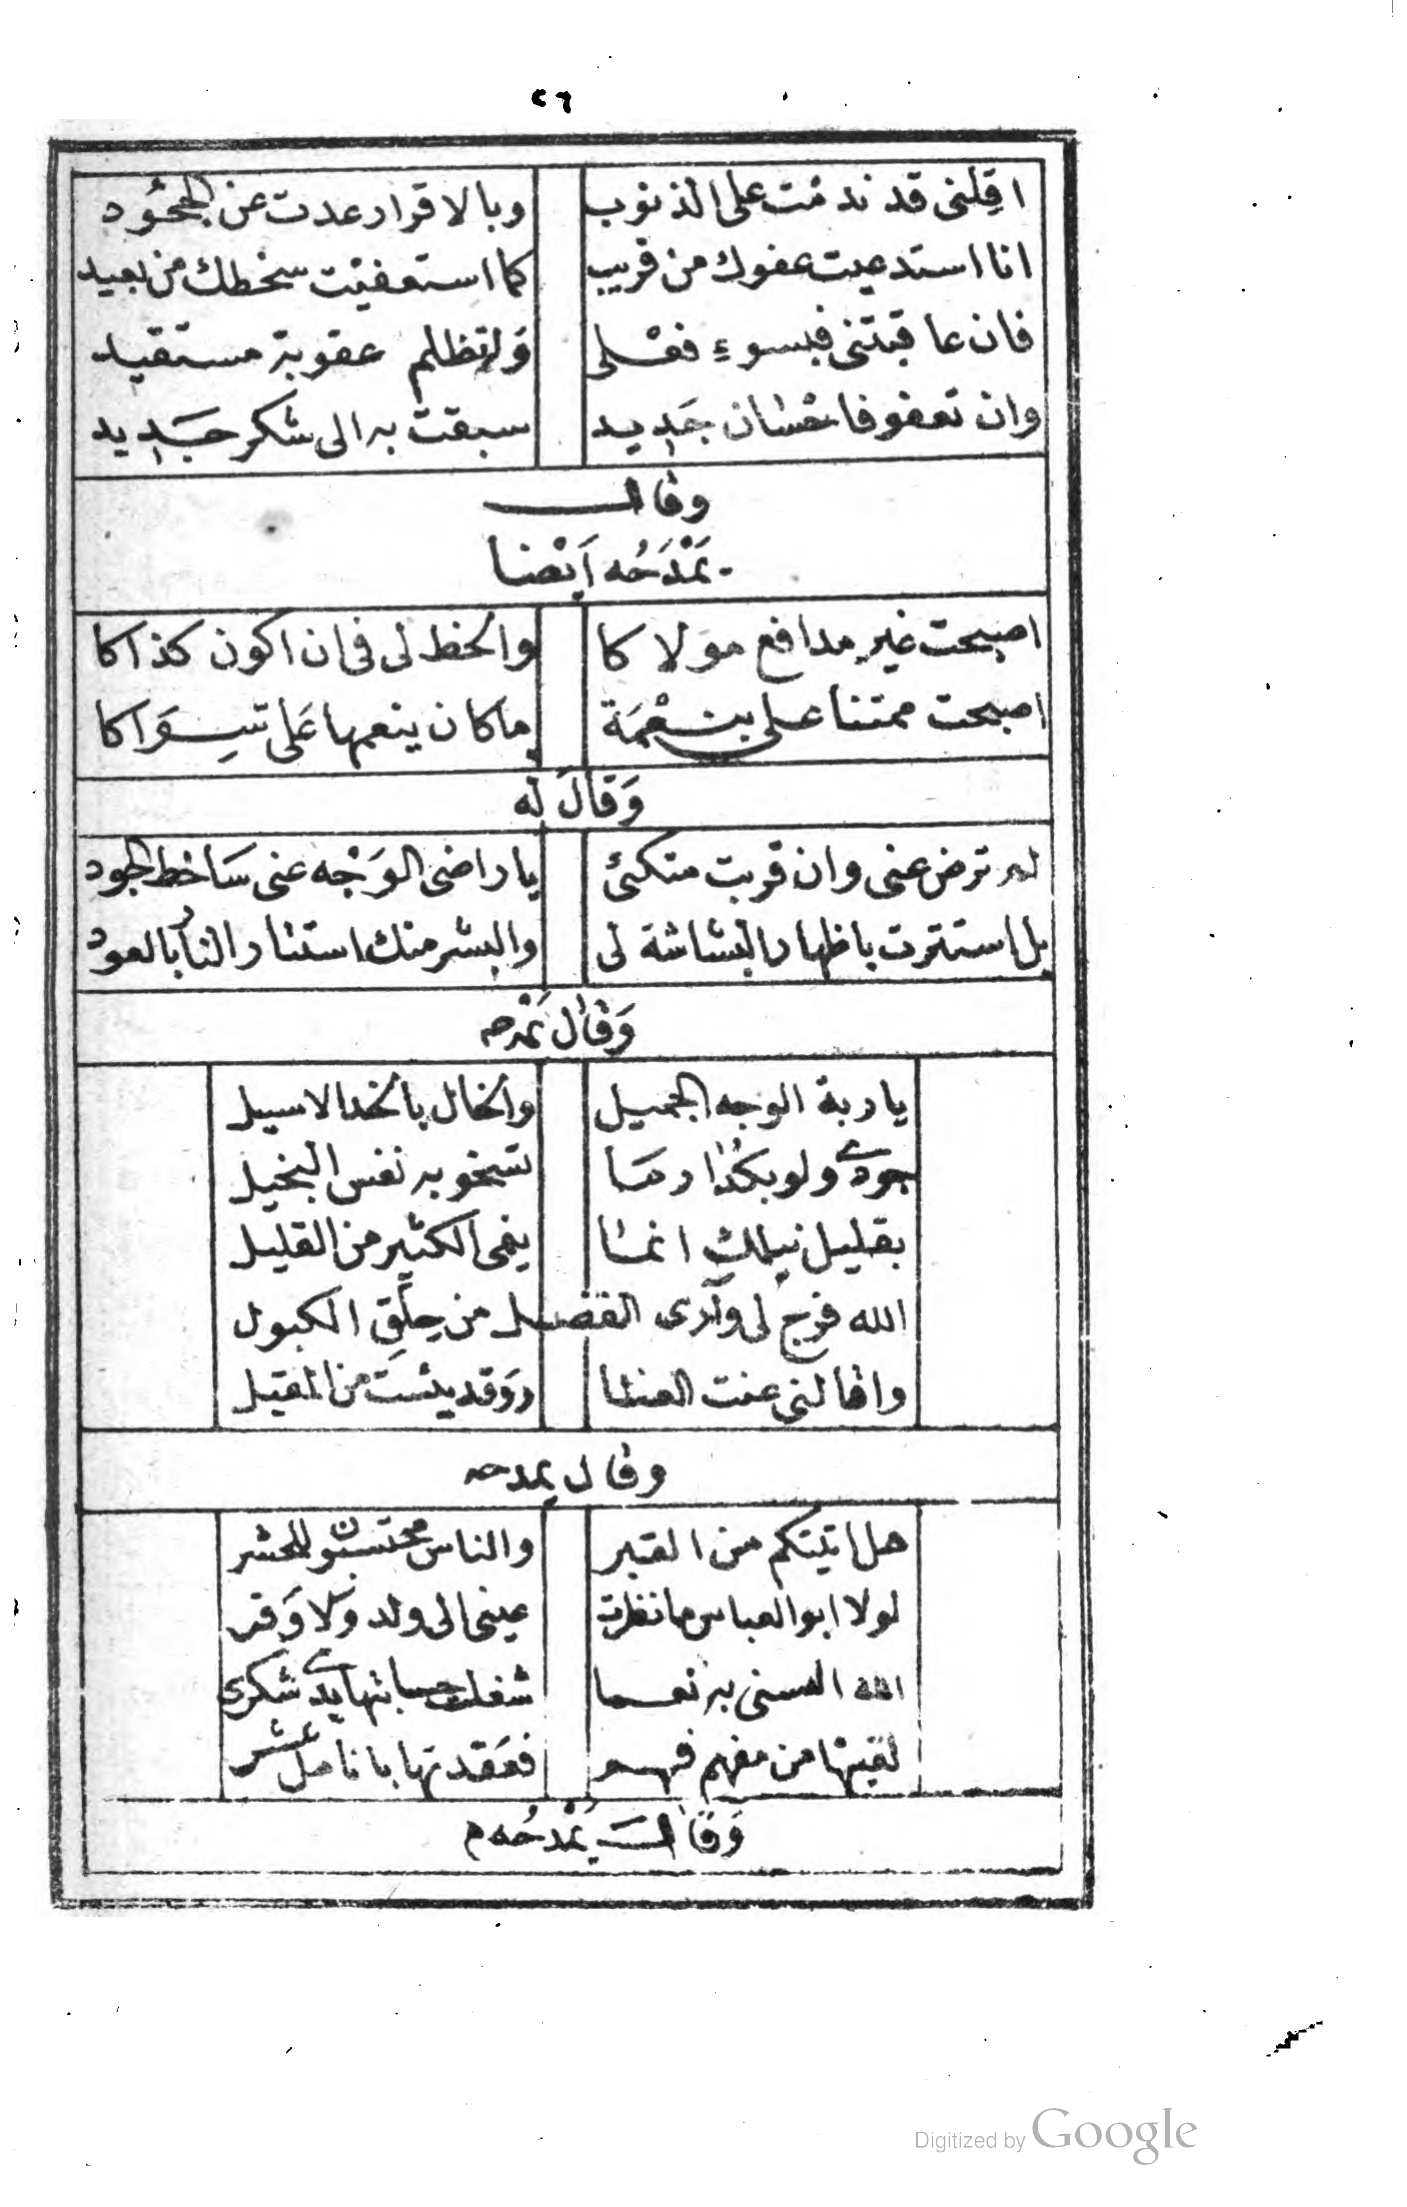 ٢٦
اقِلنى قد ندمْت على الذنوب وبالاقرار عدت عن الجحُود
انا استدعيت عفوك من قريب كما استعفيْت سخطك من بعيد
فان عاقبتنى فبسوءِ فعْلى وَلم تظلم عقوبة مستقيد
وان تعفو فاحْسان جَديد سبقت به الى شكر جَديد
وقال
يَمْدَحُه اَيْضا
اصبحت غير مدافع مَولاكا والحظ لى فى ان اكون كذاكا
اصبحت ممتنا على بنعْمَة ماكان ينعمها عَلى سِوَاكا
وَقالَ له
لم ترض عنى وان قربت متكئى يا راضى الوَجْه عنى سَاخط الجود
بل استترت باظهار البشاشة لى والبشر منك استتار النار بالعود
وَقال يَمْدحه
ياربة الوجه الجميل والخال بالخد الاسيل
جودى ولو بكذا ربما تسخو به نفس البخيل
بقليل نيلكِ انما ينمى الكثير من القليل
الله فرج لى وآدى الفضل من حِلَقِ الكبول
واقالنى عنت العثا روَقد يئست من المقيل
وقال يمدحه
هل اتيتكم من القبر والناس محتسبون للحشر
لولا ابو العباس ما نظرت عينى الى ولد وَلا وَفر
الله البسنى به نعما شغلت حسابتها يدى شكرى
لقيتها من مفهم فهم فعقدتها بانامل عشر
وَقالَ يَمْدحُه م
Digitized by Google